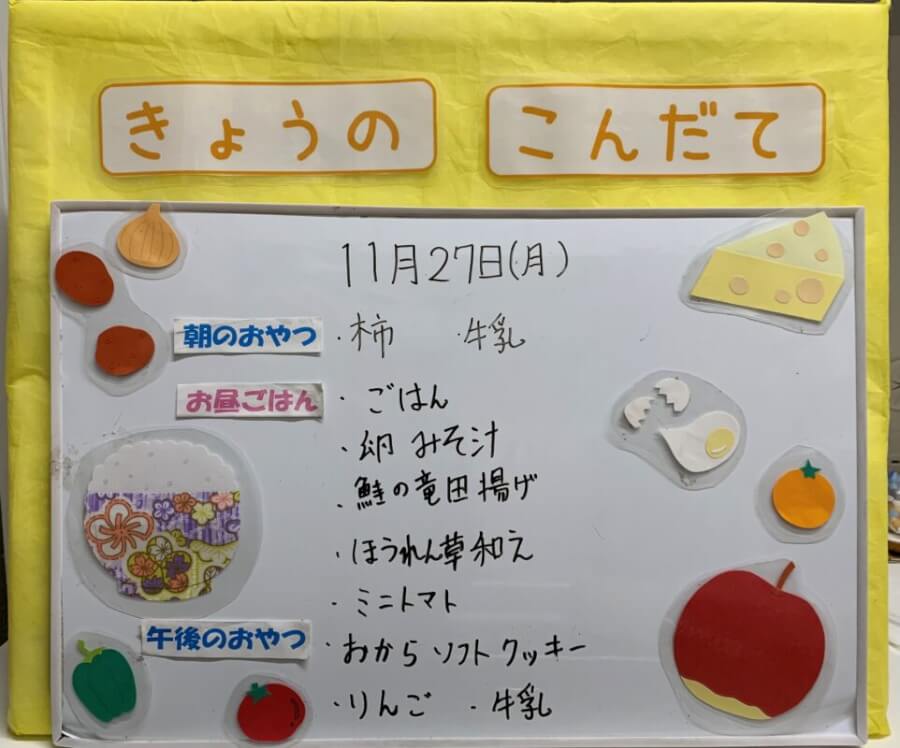 きょうの こんだて
11月27日(月)
朝のおやつ ・柿 ・牛乳
お昼ごはん ・ごはん
・みそ汁
・鮭の竜田揚げ
・ほうれん草和え
・ミニトマト
午後のおやつ ・おからソフトクッキー
・りんご ・牛乳